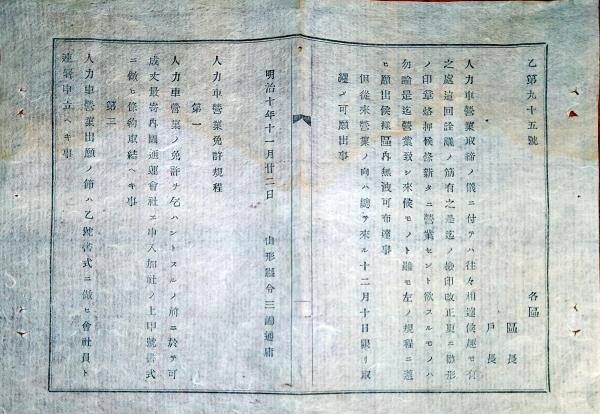 乙第九十五號
各區
區長
戶長
人力車營業取締ノ儀ニ付テハ往々相達候趣モ有
之處這回詮議ノ筋有之是迄ノ檢印改正更ニ隊形
ノ印章烙押候條新タニ營業セント欲スルモノハ
勿論是迄營業致シ來候モノト雖モ左ノ規程ニ遵
ヒ願出候樣區內無洩可布達事
但從來營業ノ向ハ總テ來ル十二月十日限リ取
纒メ可願出事
明治十年十一月廿二日
山形縣令三島通庸
人力車營業免許規程
第一
人力車營業ノ免許ヲ乞ハントスルノ前ニ於テ可
成丈最寄內國通運會社エ申入加社ノ上甲號書式
ニ倣ヒ條約取結ヘキ事
第二
人力車營業出願ノ節ハ乙號書式ニ倣ヒ會社員ト
連署申立ヘキ事